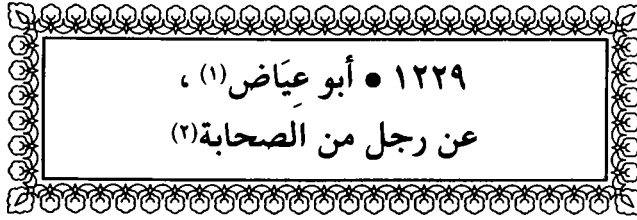 ١٢٢٩ • أبو عِيَاض(١) ،
عن رجل من الصحابة(٢)